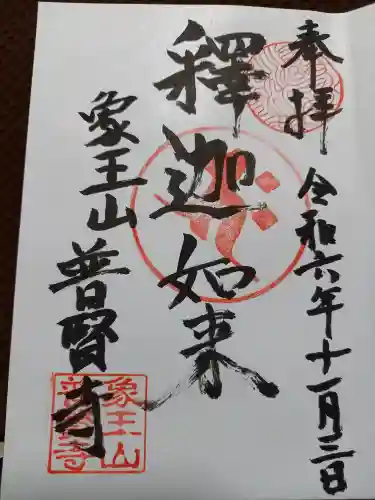 奉拝
令和六年十一月三日
釋迦如来
象王山
普賢寺
象王山
普賢寺